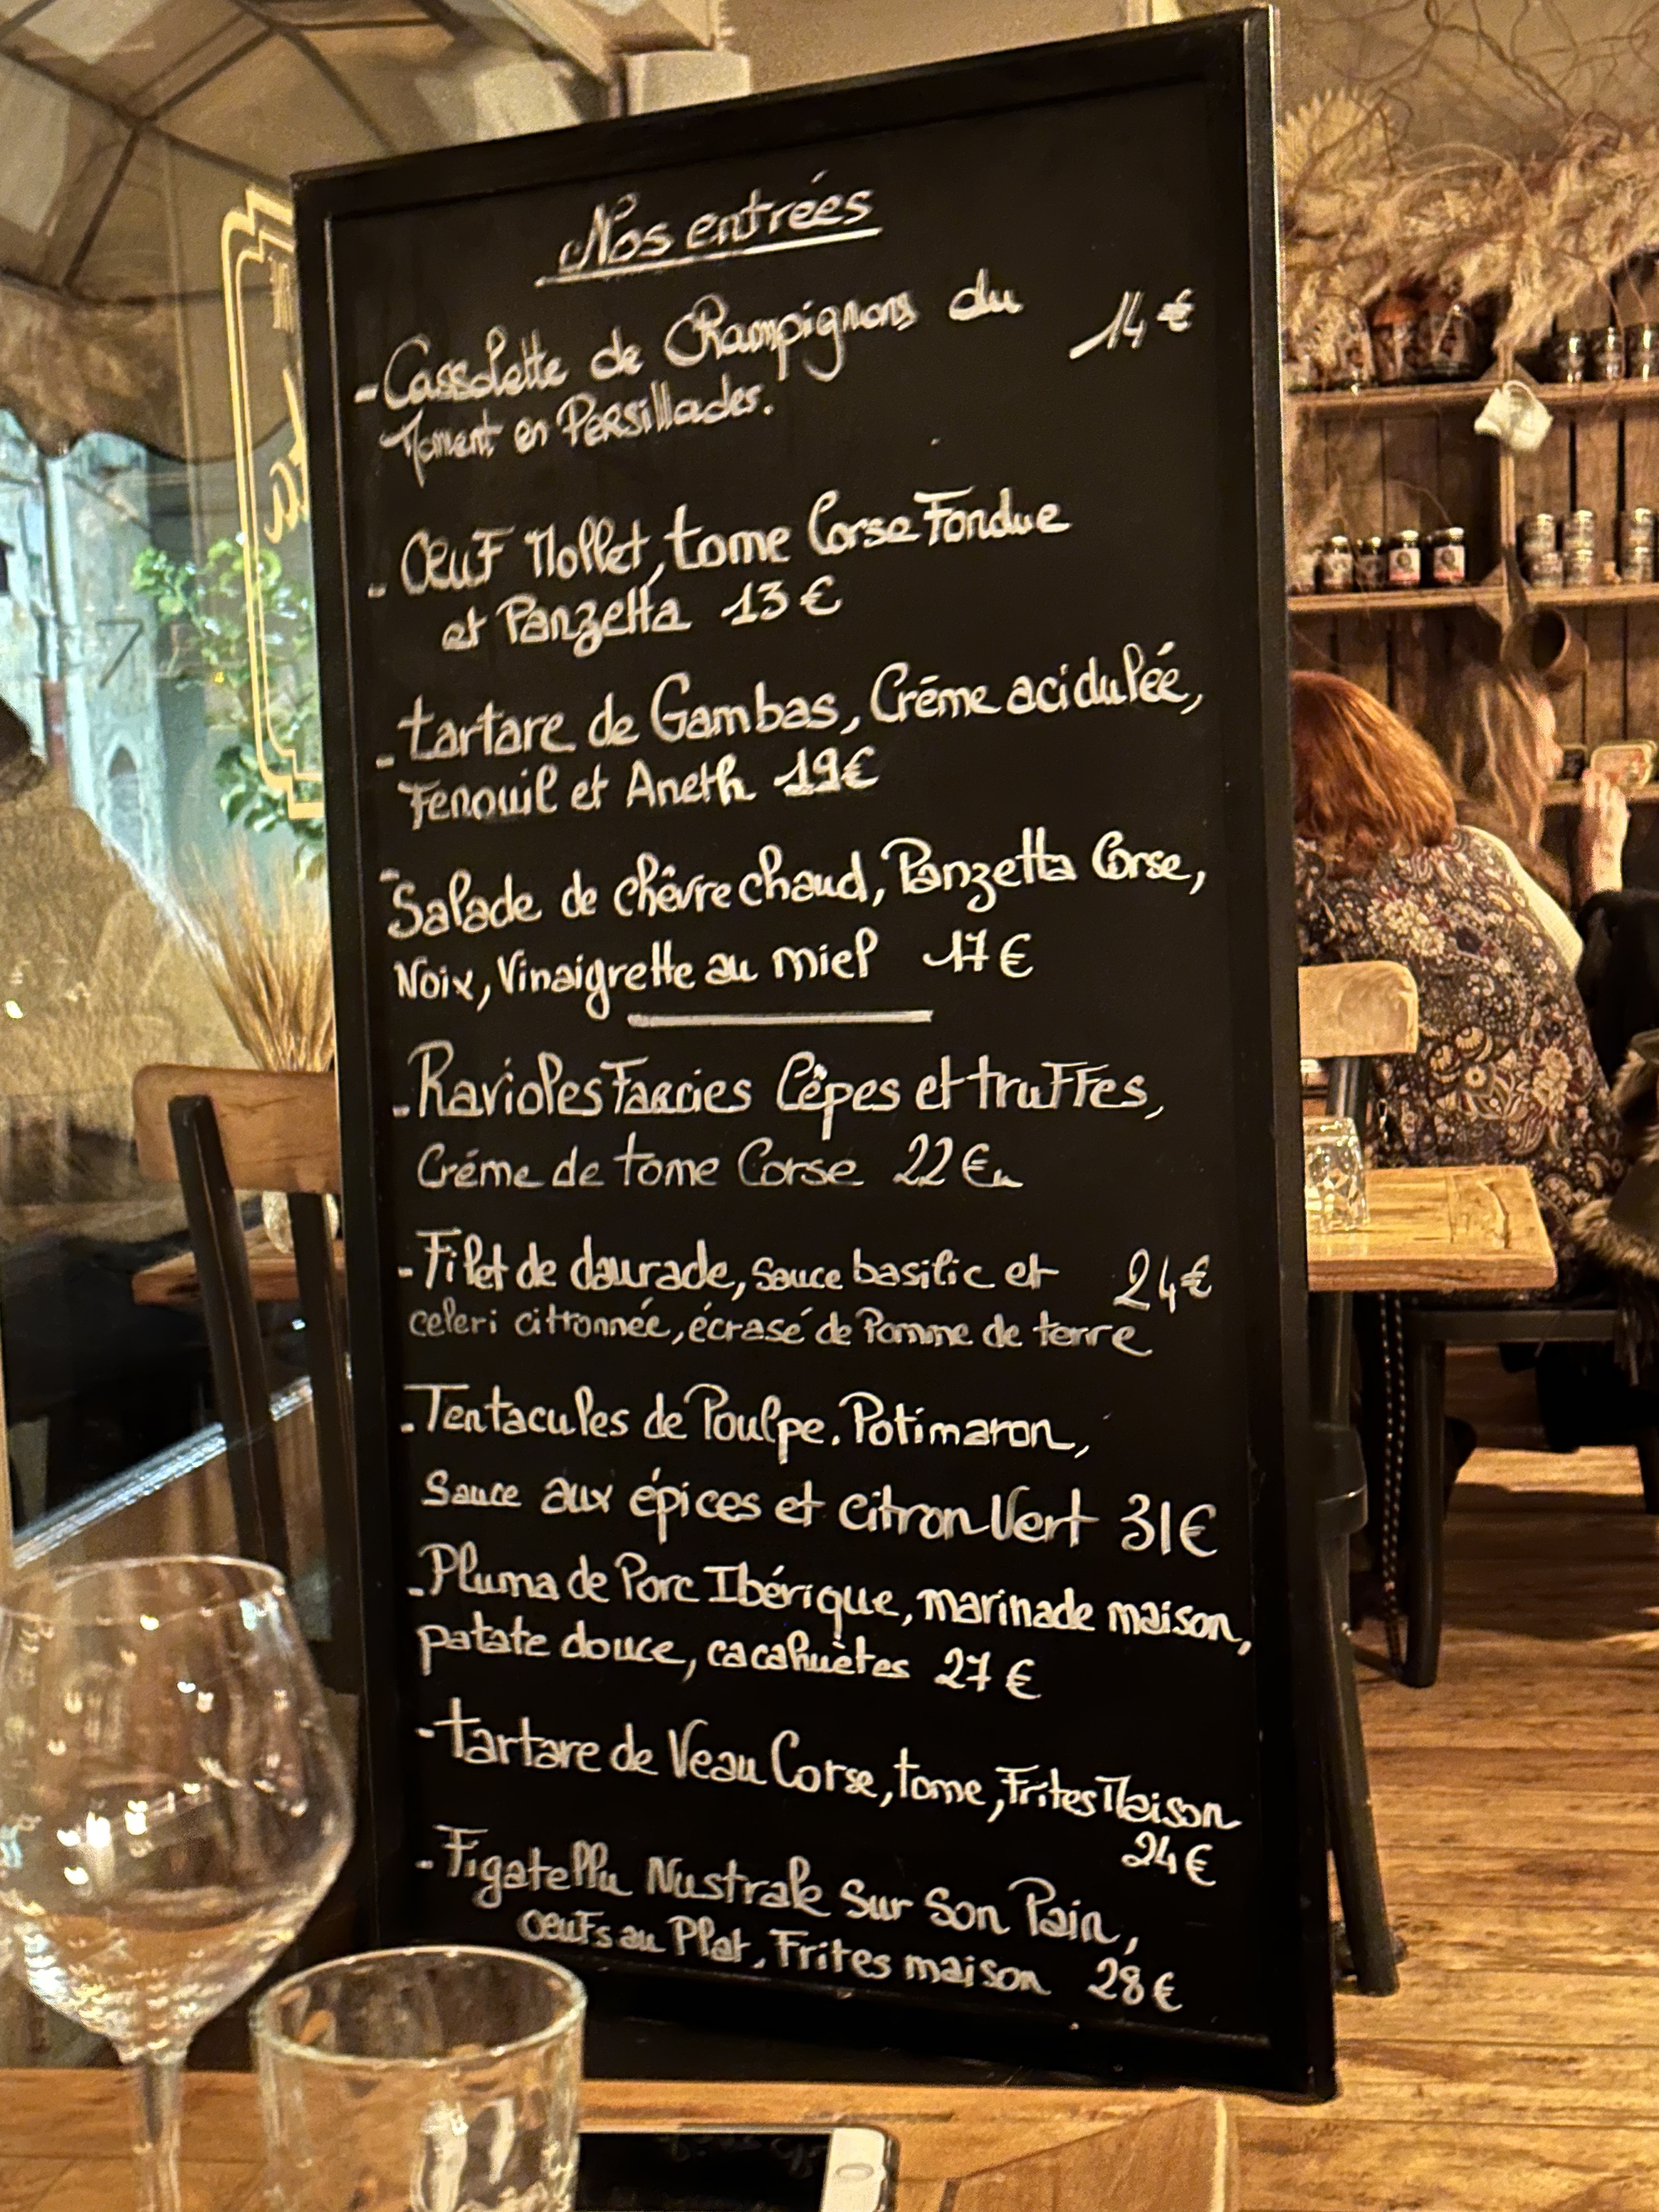 Nos entrées
- Cassolette de Champignons du 14€
Moment en Persillades.
- Œuf Mollet, tome Corse Fondue
et Panzetta 13€
- tartare de Gambas, Crème acidulée,
Fenouil et Aneth 19€
- Salade de chêvre chaud, Panzetta Corse,
Noix, Vinaigrette au miel 17€
- Ravioles Farcies Cêpes et truffes,
Créme de tome Corse 22€
- Filet de daurade, sauce basilic et 24€
celeri citronnée, écrasé de Pomme de terre
- Tentacules de Poulpe. Potimaron,
Sauce aux épices et citron Vert 31€
- Pluma de Porc Ibérique, marinade maison,
patate douce, cacahuètes 27€
- tartare de Veau Corse, tome, Frites Maison
24€
- Figatellu Nustrale Sur Son Pain,
œufs au Plat, Frites maison 28€